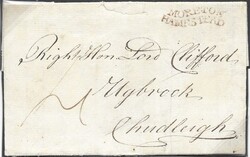 MORETON
HAMPSTEAD
Right Hon Lord Clifford
Ugbrook
Chudleigh